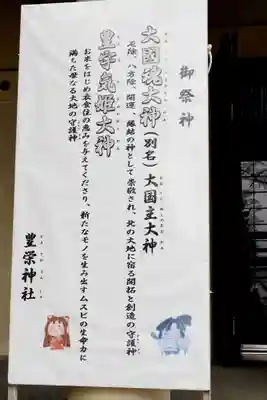 御祭神
大国魂大神(別名)大国主大神
厄除、八方除、開運、縁結の神として崇敬され、北の大地に宿る開拓と創造の守護神
豊宇気姫大神
お米をはじめ衣食住の恵みを与えてくださり、新たなモノを生み出すムスビの生命力に
満ちた母なる大地の守護神
豊栄神社